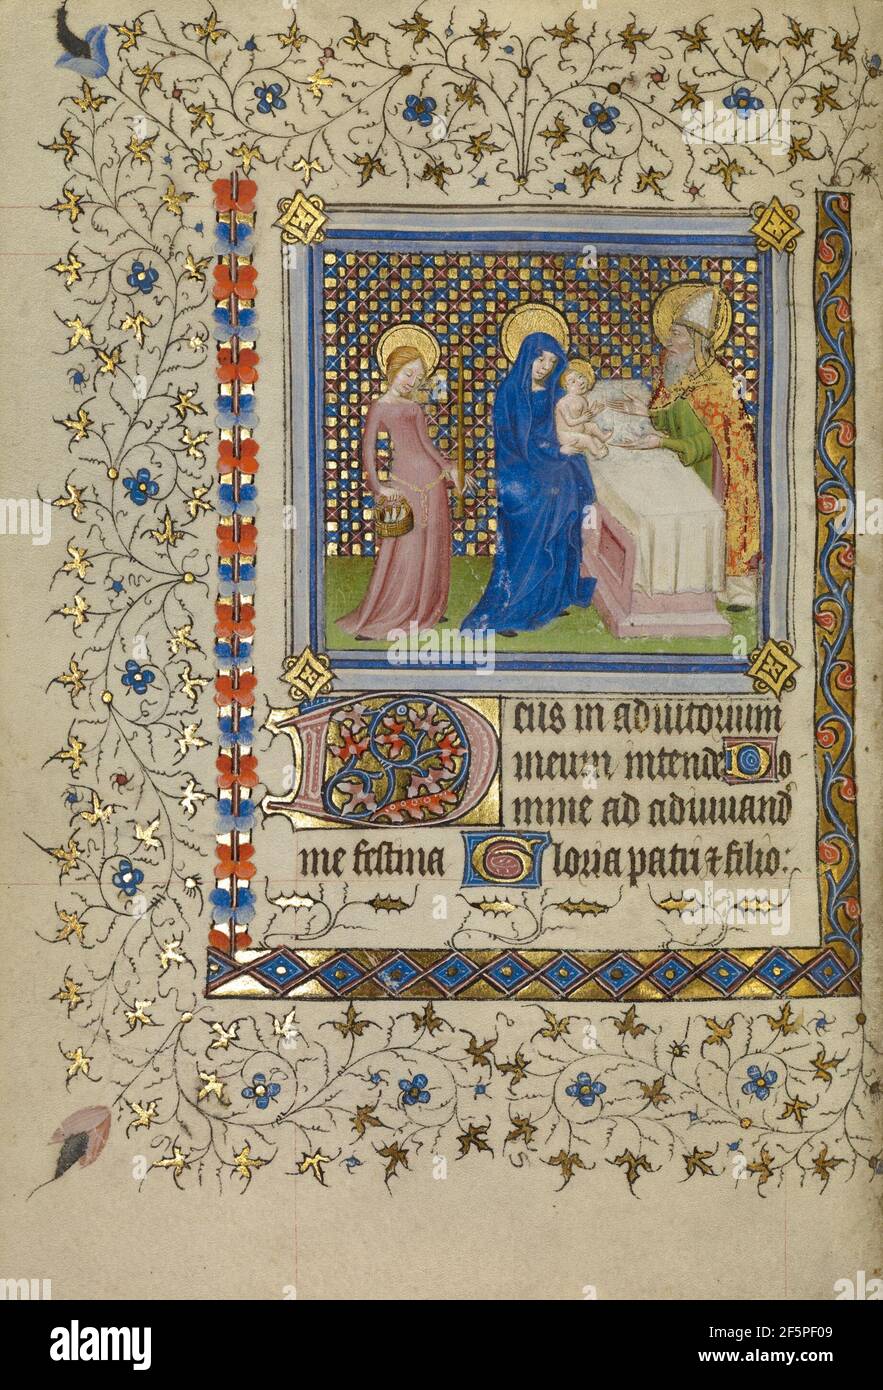 Deus in adiutorium
meum intende Do
mine ad adiuuand
me festina Gloria patri & filio:
alamy
Image ID: 2F5PF09
www.alamy.com